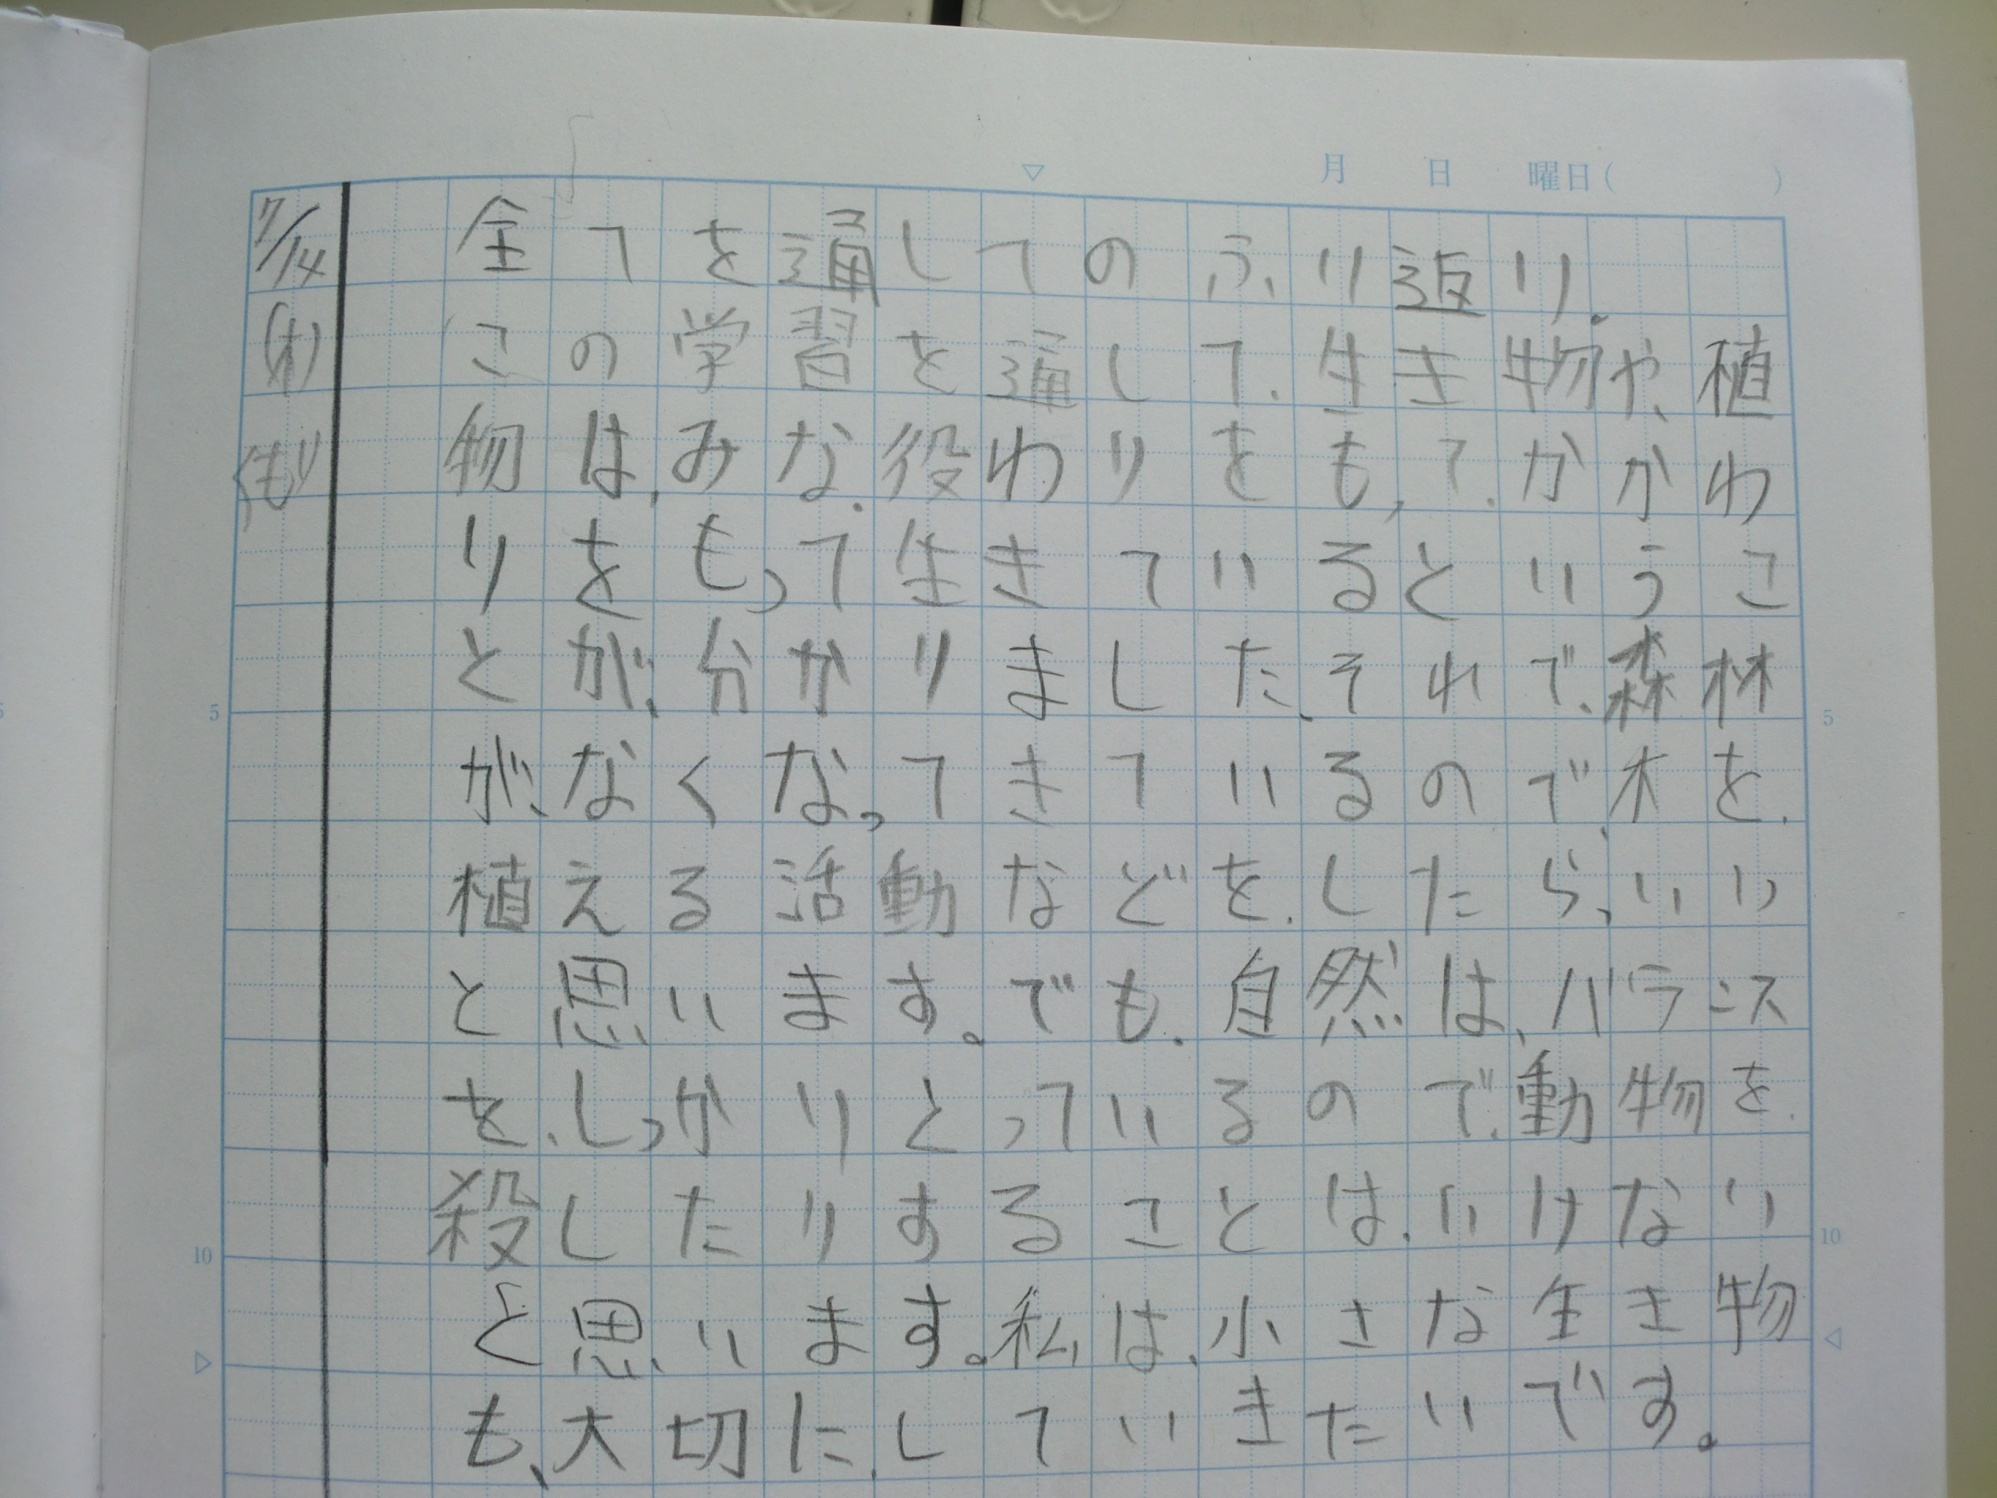 月 日 曜日( )
7/14
(木)
くもり
全てを通してのふり返り.
この学習を通して、生き物や、植
物は、みな、役わりをも,て、かかわ
りをもって生きているというこ
とが、分かりました、それで、森林
が、なくなってきているので、木を、
植える活動などを、したら、いい
と思います。でも、自然は、バランス
を、しっかりとっているので、動物を、
殺したりすることは、いけない
と思います。私は、小さな生き物
も、大切に、していきたいです。
5
10
5
10